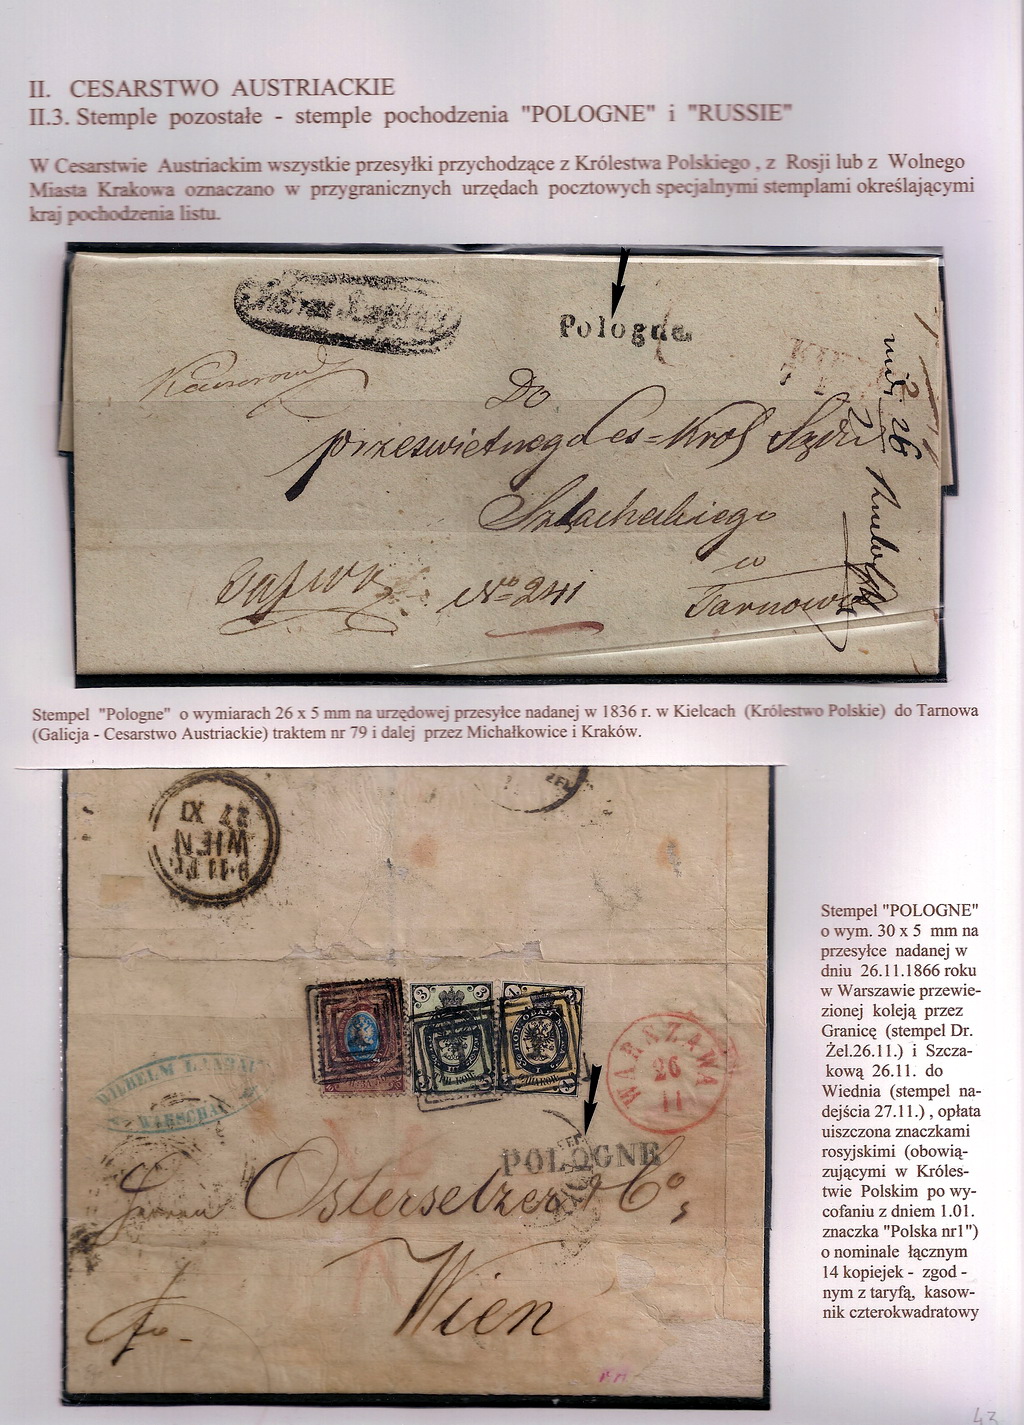 II. CESARSTWO AUSTRIACKIE
II.3. Stemple pozostałe - stemple pochodzenia "POLOGNE" i "RUSSIE"
W Cesarstwie Austriackim wszystkie przesyłki przychodzące z Królestwa Polskiego , z Rosji lub z Wolnego
Miasta Krakowa oznaczano w przygranicznych urzędach pocztowych specjalnymi stemplami określającymi
kraj pochodzenia listu.
Pologne.
Do
przeswietnego Ces=Krol Sądu
Szlacheckiego
w
Tarnowie
No 241
Stempel "Pologne" o wymiarach 26 x 5 mm na urzędowej przesyłce nadanej w 1836 r. w Kielcach (Królestwo Polskie) do Tarnowa
(Galicja - Cesarstwo Austriackie) traktem nr 79 i dalej przez Michałkowice i Kraków.
27 XI
WIEN
WILHELM LANDAU
WARSCHAU
3 3
4
WARSZAWA
26
11
POLOGNE
Herren Ostersetzer & Co,
Wien
fro-
Stempel "POLOGNE"
o wym. 30 x 5 mm na
przesyłce nadanej w
dniu 26.11.1866 roku
w Warszawie przewie-
zionej koleją przez
Granicę (stempel Dr.
Żel.26.11.) i Szcza-
kową 26.11. do
Wiednia (stempel na-
dejścia 27.11.) , opłata
uiszczona znaczkami
rosyjskimi (obowią-
zującymi w Króles-
twie Polskim po wy-
cofaniu z dniem 1.01.
znaczka "Polska nr1")
o nominale łącznym
14 kopiejek - zgod -
nym z taryfą, kasow-
nik czterokwadratowy
43